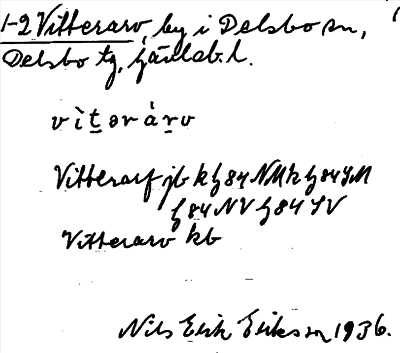 1-2 Vitterarv, by i Delsbo sn,
Delsbo tg, Gävleb. l.
vìtərárv
Vitterarf jb k h 84 NM k h 84 SM
h 84 NV h 84 SV
Vitterarv kb
Nils Erik Eriksson 1936.